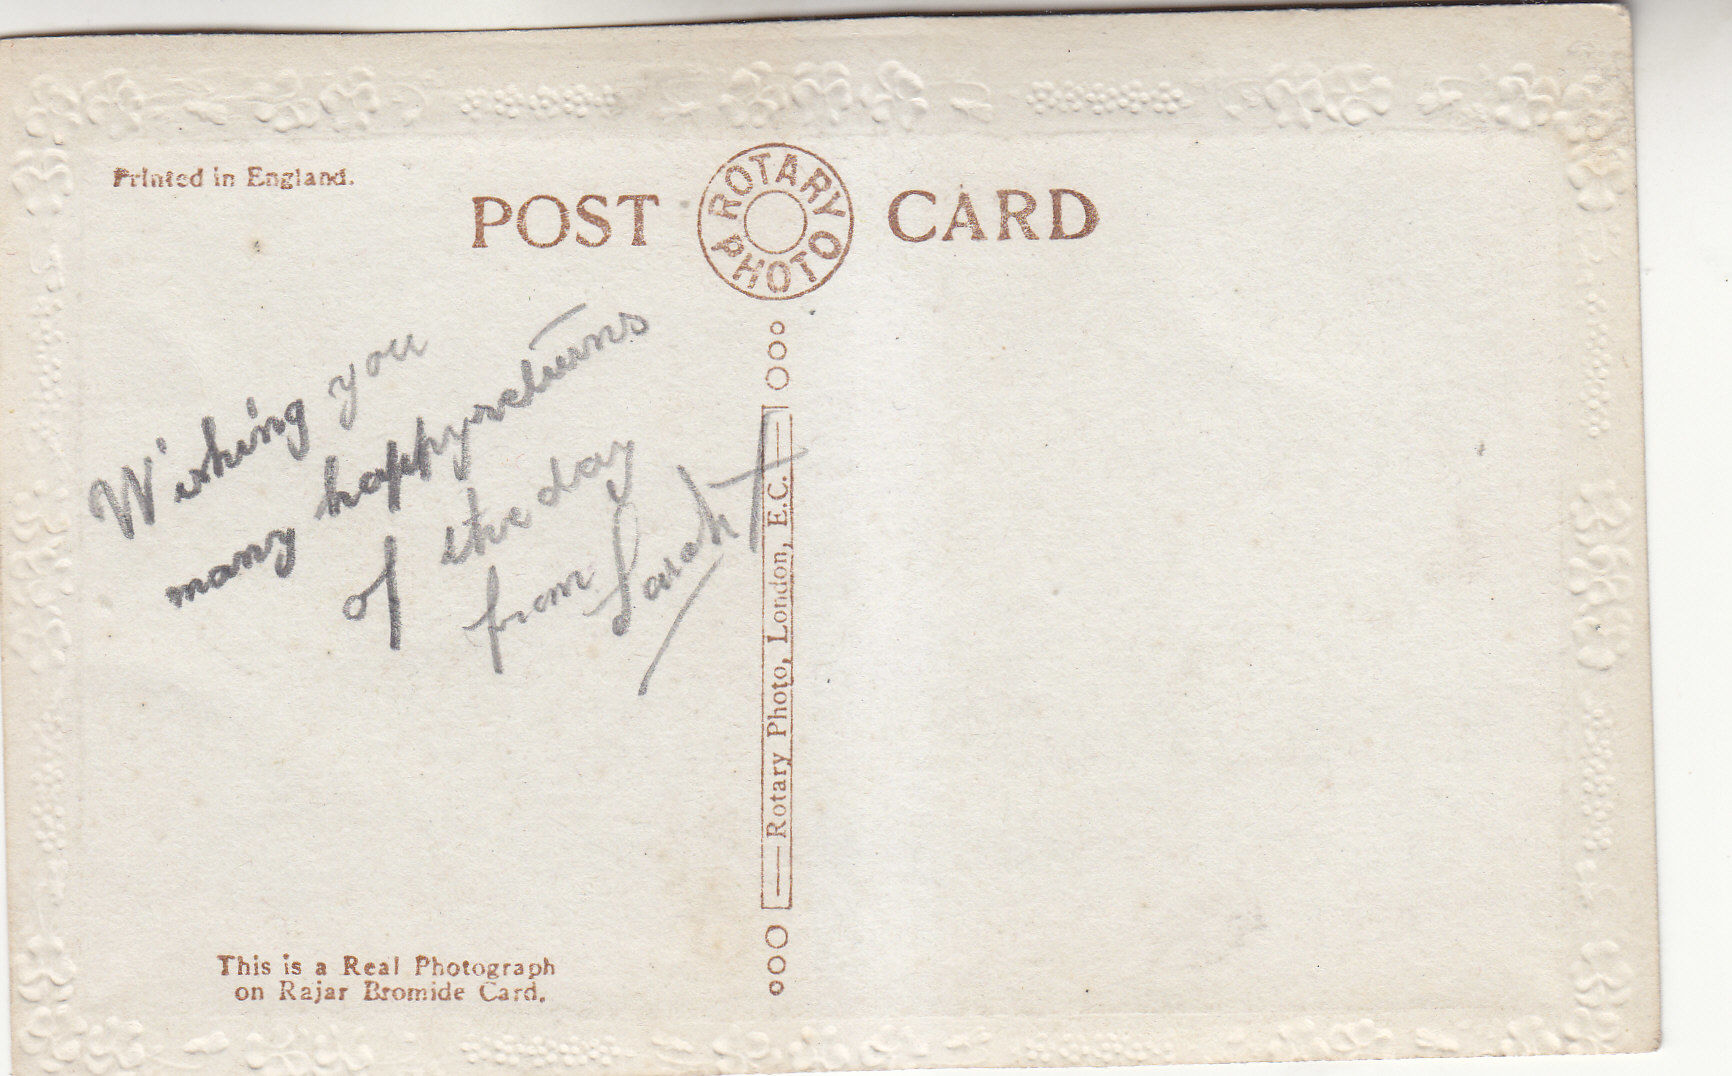 Printed in England.
POST CARD
ROTARY PHOTO
Wishing you
many happy returns
of the day
from Sarah
Rotary Photo, London, E.C.
This is a Real Photograph
on Rajar Bromide Card.